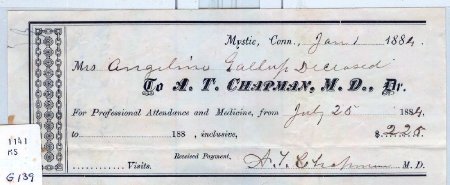 Mystic, Conn., Jan 1 1884.
Mrs Angeline Gallup Deceased
To A. T. CHAPMAN, M. D., Dr.
For Professional Attendance and Medicine, from July 25 1884,
to 188 , inclusive, $ 2.25
Visits. Received Payment, A. T. Chapman M. D.
1141
G 139